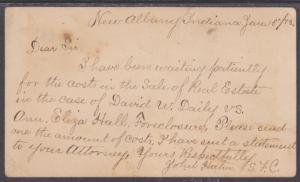 New Albany Indiana Jan. 15/73
Dear Sir
I have been waiting patiently
for the costs in the Sale of Real Estate
in the case of David W. Daily vs.
Ann. Eliza Hall. Foreclosure, Please send
me the amount of costs, I have sent a statement
to your Attorney Yours Respectfully
John S.F.C.